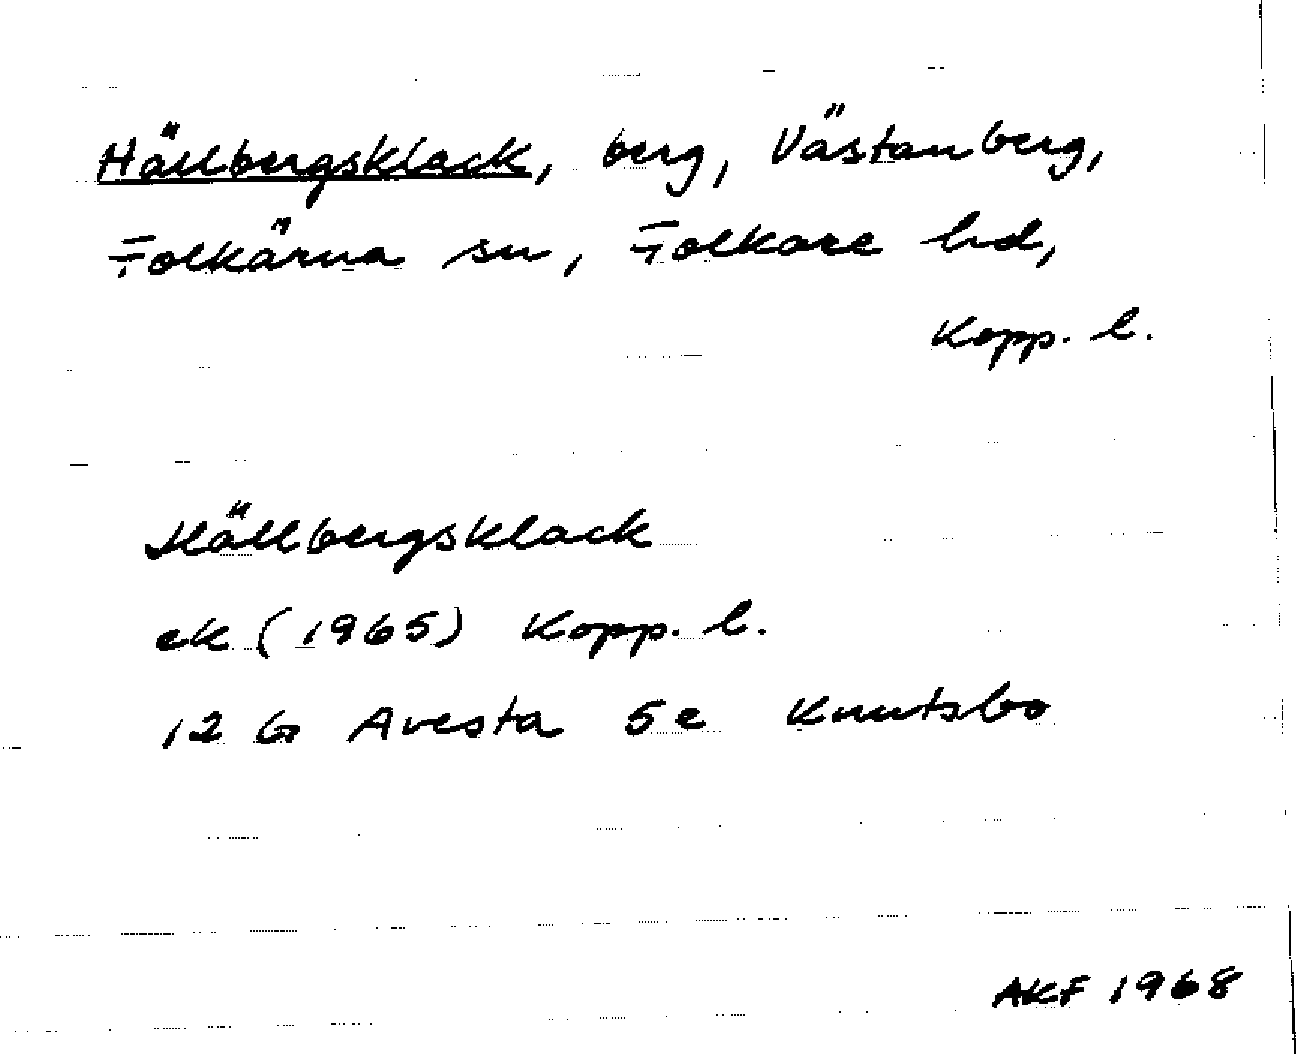 Hällbergsklack, berg, Västanberg,
Folkärna sn, Folkare hd,
Kopp. l.
Hällbergsklack
ek (1965) Kopp. l.
12 G Avesta 5e Knutsbo
AKF 1968